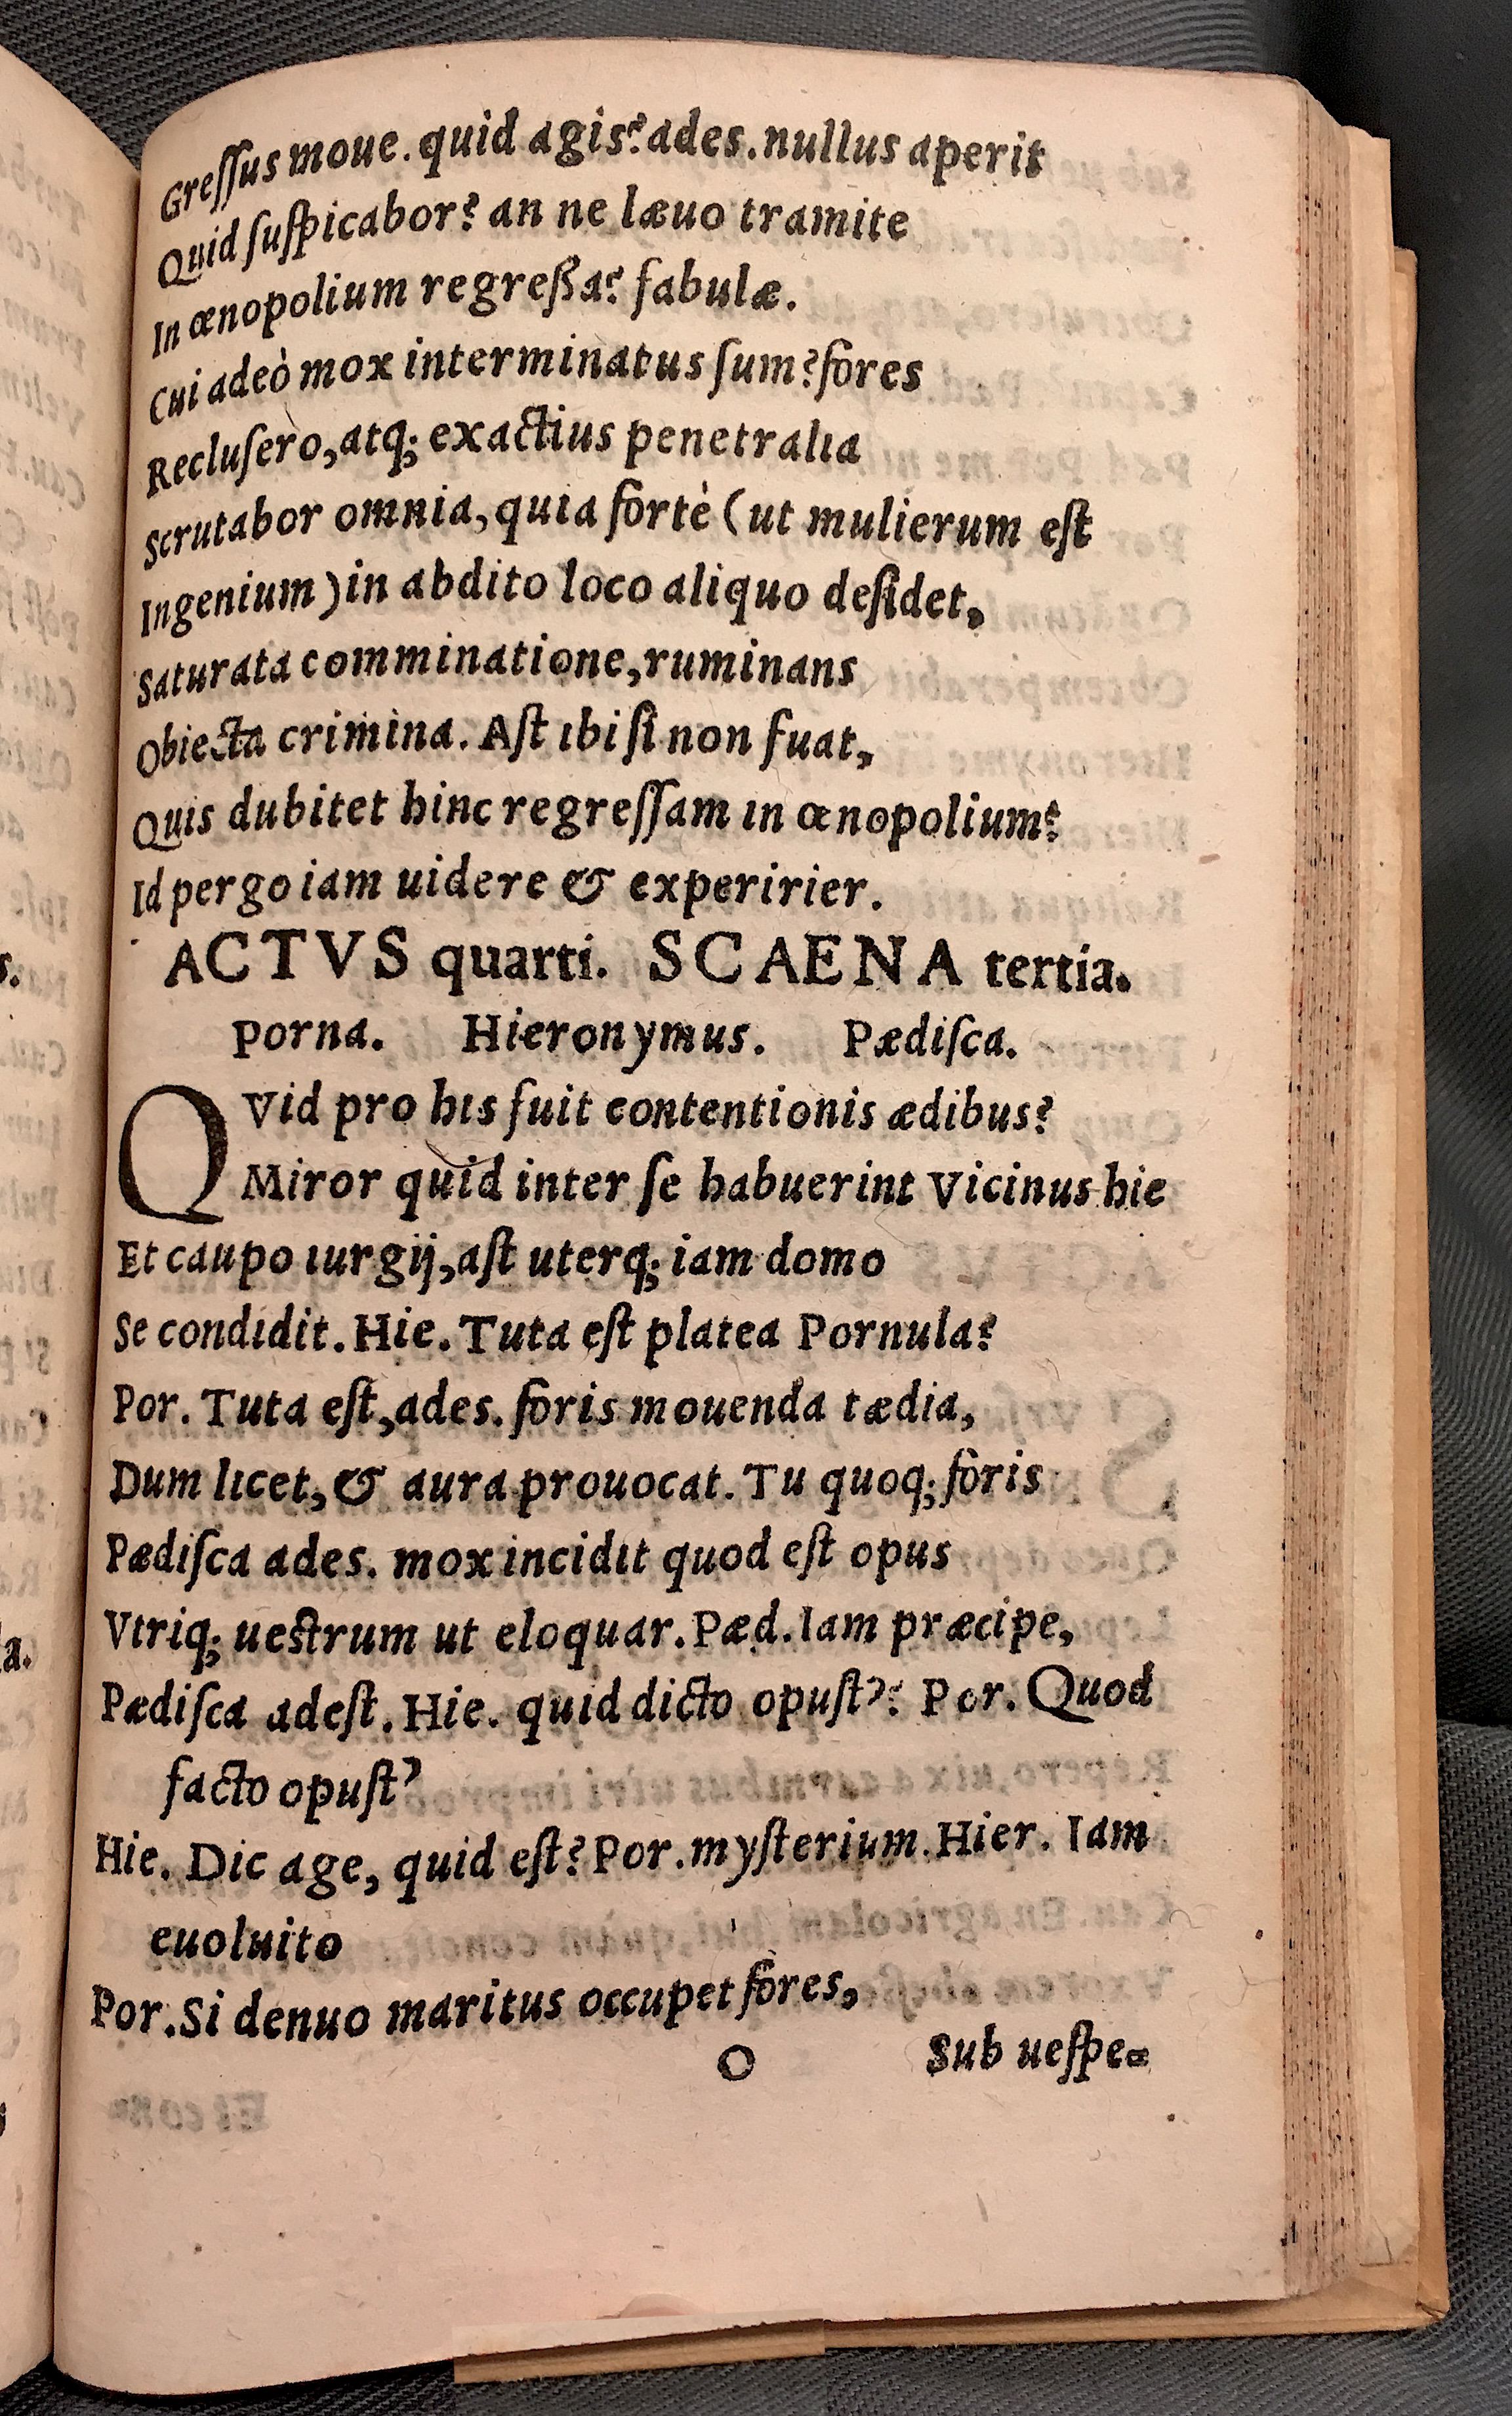 Greſſus moue. quid agis? ades. nullus aperit
Quid ſuſpicabor? an ne læuo tramite
In œnopolium regreßa? fabulæ.
Cui adeò mox interminatus ſum? fores
Recluſero, atq; exactius penetralia
Scrutabor omnia, quia fortè (ut mulierum eſt
Ingenium) in abdito loco aliquo deſidet,
Saturata comminatione, ruminans
Obiecta crimina. Aſt ibi ſi non fuat,
Quis dubitet hinc regreſſam in œnopolium?
Id pergo iam uidere & experirier.
ACTVS quarti. SCAENA tertia.
Porna. Hieronymus. Pædiſca.
QVid pro his fuit contentionis ædibus?
Miror quid inter ſe habuerint Vicinus hic
Et caupo iurgij, aſt uterq; iam domo
Se condidit. Hie. Tuta eſt platea Pornula?
Por. Tuta eſt, ades. foris mouenda tædia,
Dum licet, & aura prouocat. Tu quoq; foris
Pædiſca ades. mox incidit quod eſt opus
Vtriq; ueſtrum ut eloquar. Pæd. Iam præcipe,
Pædiſca adeſt. Hie. quid dicto opuſt? Por. Quod
facto opuſt?
Hie. Dic age, quid eſt? Por. myſterium. Hier. Iam
euoluito
Por. Si denuo maritus occupet fores,
O Sub ueſpe=